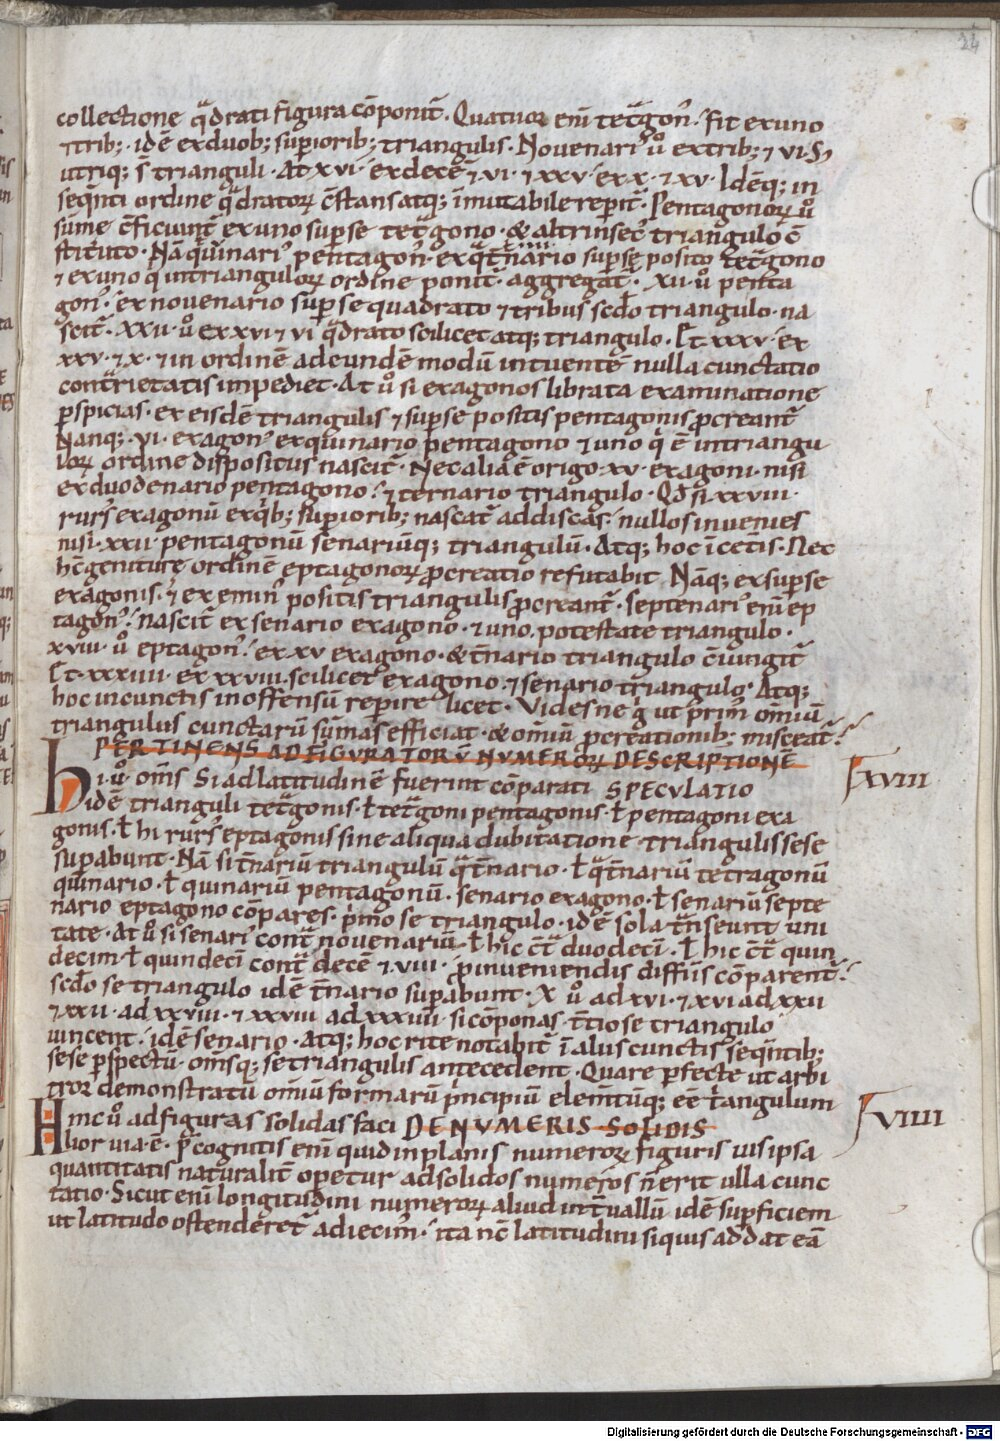 24
collectione q̄drati figura cōponit̄. Quatuor eni̅ tet̄gon᾿. fit ex uno
⁊ trib;. idē ex duob; sup̱iorib; triangulis. Nouenari᾿ ů ex trib; ⁊ vi. S;
utriq; s̅ trianguli. At xvi. ex decē ⁊ vi. ⁊ xxv. ex x. ⁊ xv. Idēq; in
seq̄nti ordine q̄dratoꝝ c̄stans atq; īmutabile repit̄. Pentagonoꝝ ů
sūme c̄ficiunt̄ ex uno sup se tet̄gono. & alt̄rinsec᾿ triangulo c̄
stituto. Nā q̄uīnari᾿ pentagon᾿. ex q̄t̄nario sup se posito tet̄gono
.iiii.
⁊ ex uno q̇ in trianguloꝝ ordine ponit̄. aggregat̄. xii. ů penta
gon᾿. ex nouenario sup se quadrato ⁊ tribus sc̄do triangulo. na
scit̄. xxii. ů ex xvi ⁊ vi q̄drato scilicet atq; triangulo. Et xxxv. ex
xxv. ⁊ x. ⁊ in ordinē ad eundē modū intuentē nulla cunctatio
cont̄rietatis impediet. At ů si exagonos librata examinatione
pspicias. ex eisdē triangulis ⁊ sup se positis pentagonis ꝓcreant̄
Nanq;. vi. exagon᾿ ex quinario pentagono ⁊ uno q̇ ē in triangu
loꝝ ordine dispositus nascit̄. Nec alia ē origo. xv. exagoni. nisi
ex duodenario pentagono. ⁊ ternario triangulo. Qđ si xxviii.
rurs᾿ exagonū ex q̇b; sup̱iorib; nascat̄ addiscas. nullos inuenies
nisi. xxii. pentagonū senariūq; triangulū. Atq; hoc ī cet̄is. Nec
hc̄ geniture ordinē eptagonoꝝ ꝓcreatio refutabit. Nāq; ex sup se
exagonis. ⁊ ex emin᾿ positis triangulis ꝓcreant̄. septenari᾿ eni̅ ep
tagon᾿. nascit̄ ex senario exagono. ⁊ uno. potestate triangulo.
xviii. ů eptagon᾿. ex xv exagono. & t̄nario triangulo c̄iungit̄
Et. xxxiiii. ex xxviii. scilicet exagono. ⁊ senario triangulo. Atq;
hoc in cunctis inoffensū repire licet. Videsne g̊ ut prim᾿ omniū
triangulus cunctarū sūmas efficiat. & omīū ꝓcreationib; misceat̄.
PERTINENS AD FIGURATORŪ NVMERORꝝ DESCRIPTIONĒ
hi. ů. omīs Si ad latitudinē fuerint cōparati SPECVLATIO xviii
idē trianguli tet̄gonis. ł tet̄goni pentagonis. ł pentagoni exa
gonis. ł hi rurs᾿ eptagonis sine aliqua dubitatione triangulis sese
supabunt. Nā si t̄nariū triangulū q̄t̄nario. ł q̄t̄nariū tetragonū
quinario. ł quinariū pentagonū. senario exagono. ł senariū septe
nario eptagono cōpares. p̄mo se triangulo. idē sola t̄nseunt uni
tate. At ů si senari᾿ cont̄ nouenariū. ł hic c̄t̄ duodeci̅. ł hic c̄t̄ quin
decim. ł quindeci̅ cont̄ decē ⁊ viii. ꝓ inueniendis diffn̄s cōparent̄.
sc̄do se triangulo idē t̄nario supabunt. x ů ad xvi. ⁊ xvi ad xxii
⁊ xxii. ad xxviii. ⁊ xxviii ad xxxiiii. si cōponas. t̄tio se triangulo
uincent. idē senario. Atq; hoc rite notabit̄ ī aliis cunctis seq̄ntib;
sese pspectū. omīsq; se triangulis antecedent. Quare pfecte ut arbi
tror demonstratū omiū formarū p̄ncipiū elem̄tūq; ee t̄angulum
Hinc ů ad figuras solidas faci DE NVMERIS SOLIDIS xviiii
lior uia ē. p̄cognitis eni̅ quid in planis numeroꝝ figuris uis ipsa
quantitatis naturalit̄ opetur. ad solidos numeros n̄ erit ulla cunc
tatio. Sicut eni̅ longitudini numeroꝝ aliud int̄uallū idē supficiem
ut latitudo ostenderet̄ adiecim᾿. ita nc̄ latitudini si quis addat eā
Digitalisierung gefördert durch die Deutsche Forschungsgemeinschaft - DFG